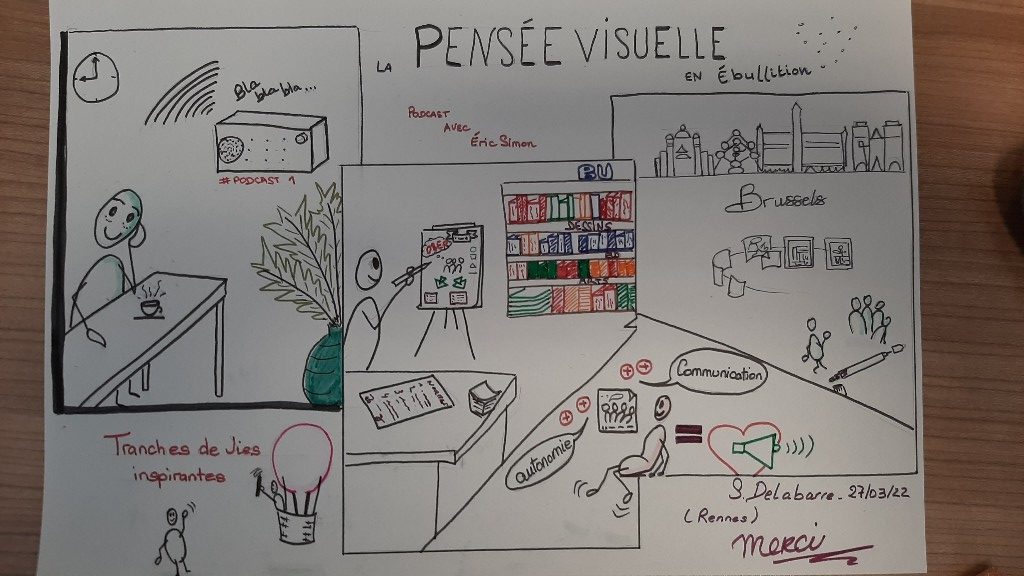 LA PENSÉE VISUELLE
EN Ébullition
Bla
bla bla...
# PODCAST 1
PODCAST
AVEC
Éric Simon
BU
DESSINS
BD
ARTS
Brussels
Communication
autonomie
Tranches de Vies
inspirantes
S. Delabarre - 27/03/22
(Rennes)
Merci